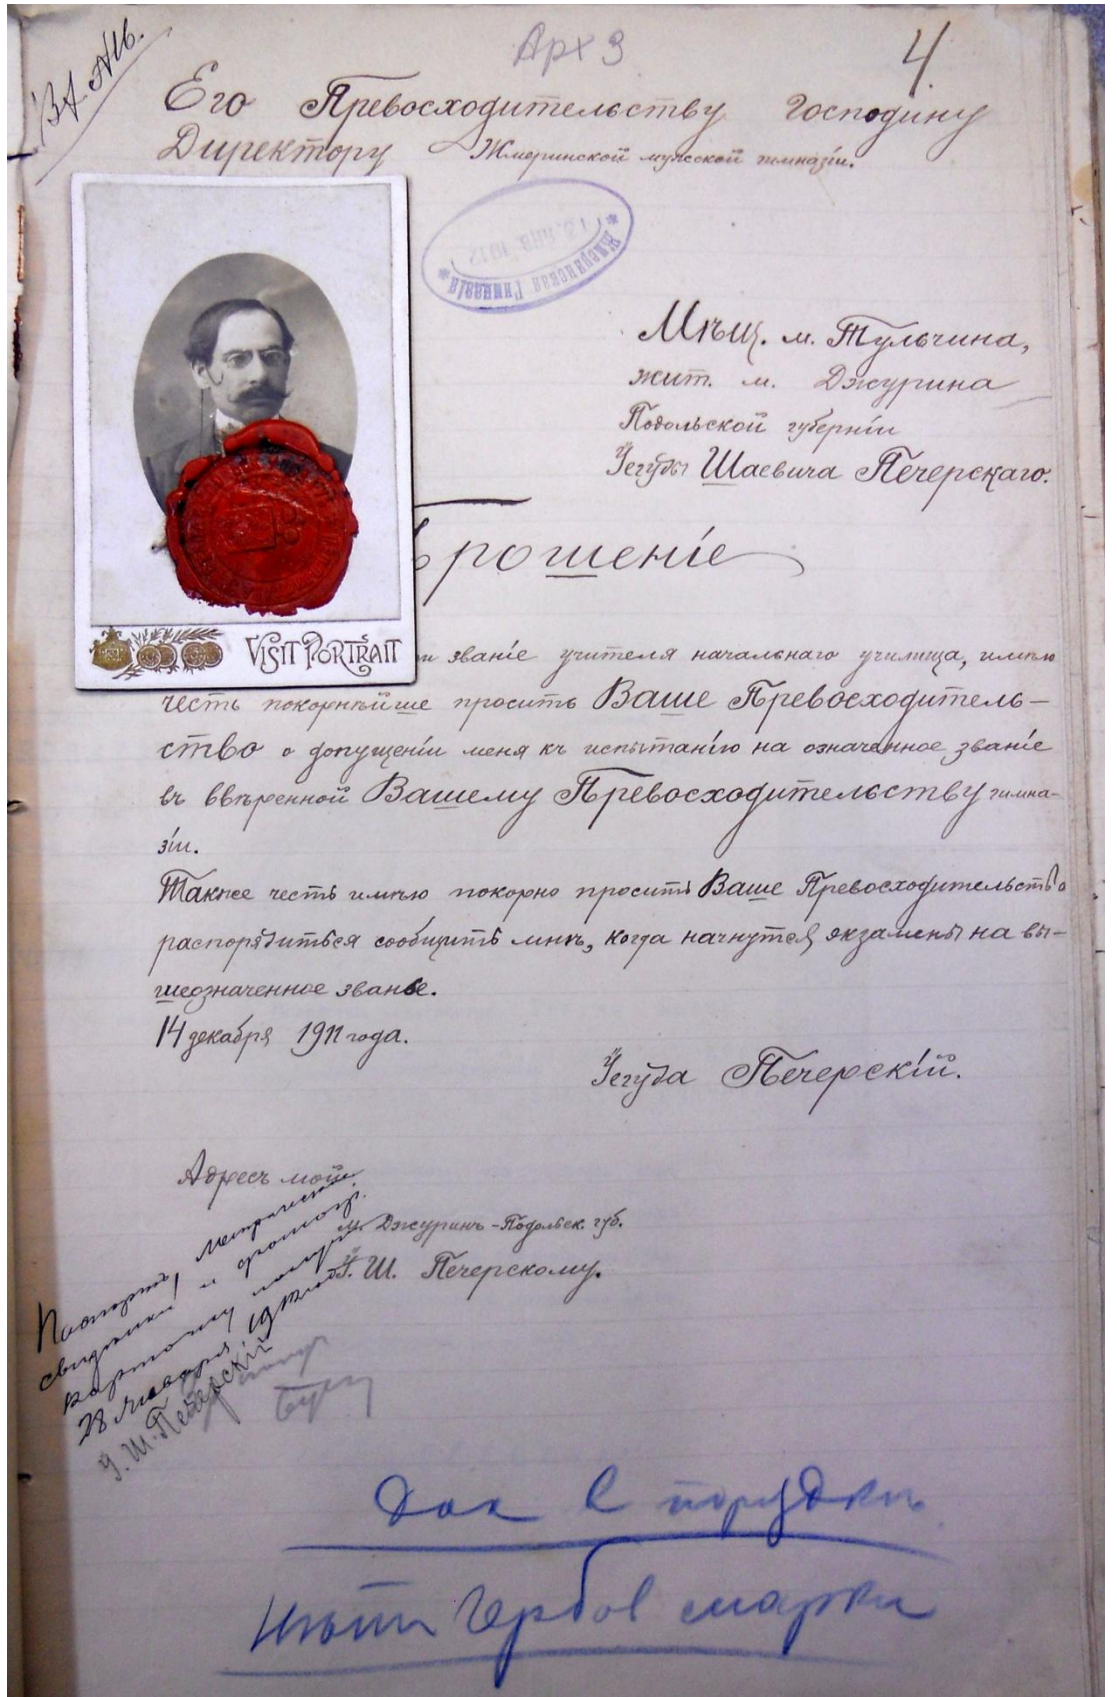 Арх 3
4
Его Превосходительству Господину
Директору Жмеринской мужской гимназіи.
* Жмеринская Гимназія *
13. ЯНВ. 1912
Мѣщ. м. Тульчина,
жит. м. Джурина
Подольской губерніи
Іегуды Шаевича Печерскаго.
рошеніе
VISIT PORTRAIT
званіе учителя начальнаго училища, имѣю
честь покорнѣйше просить Ваше Превосходитель-
ство о допущеніи меня къ испытанію на означенное званіе
въ ввѣренной Вашему Превосходительству гимна-
зіи.
Также честь имѣю покорно просить Ваше Превосходительство
распорядиться сообщить мнѣ, когда начнутся экзамены на вы-
шеозначенное званіе.
14 декабря 1911 года.
Іегуда Печерскій.
Адресъ мой
м. Джуринъ-Подольск. губ.
Й. Ш. Печерскому.
Паспортъ, метрическое
свидѣт. и фотогр.
карточку получилъ
28 Января 1912 года
Й. Ш. Печерскій
Док в порядкѣ
нѣтъ Гербов марки